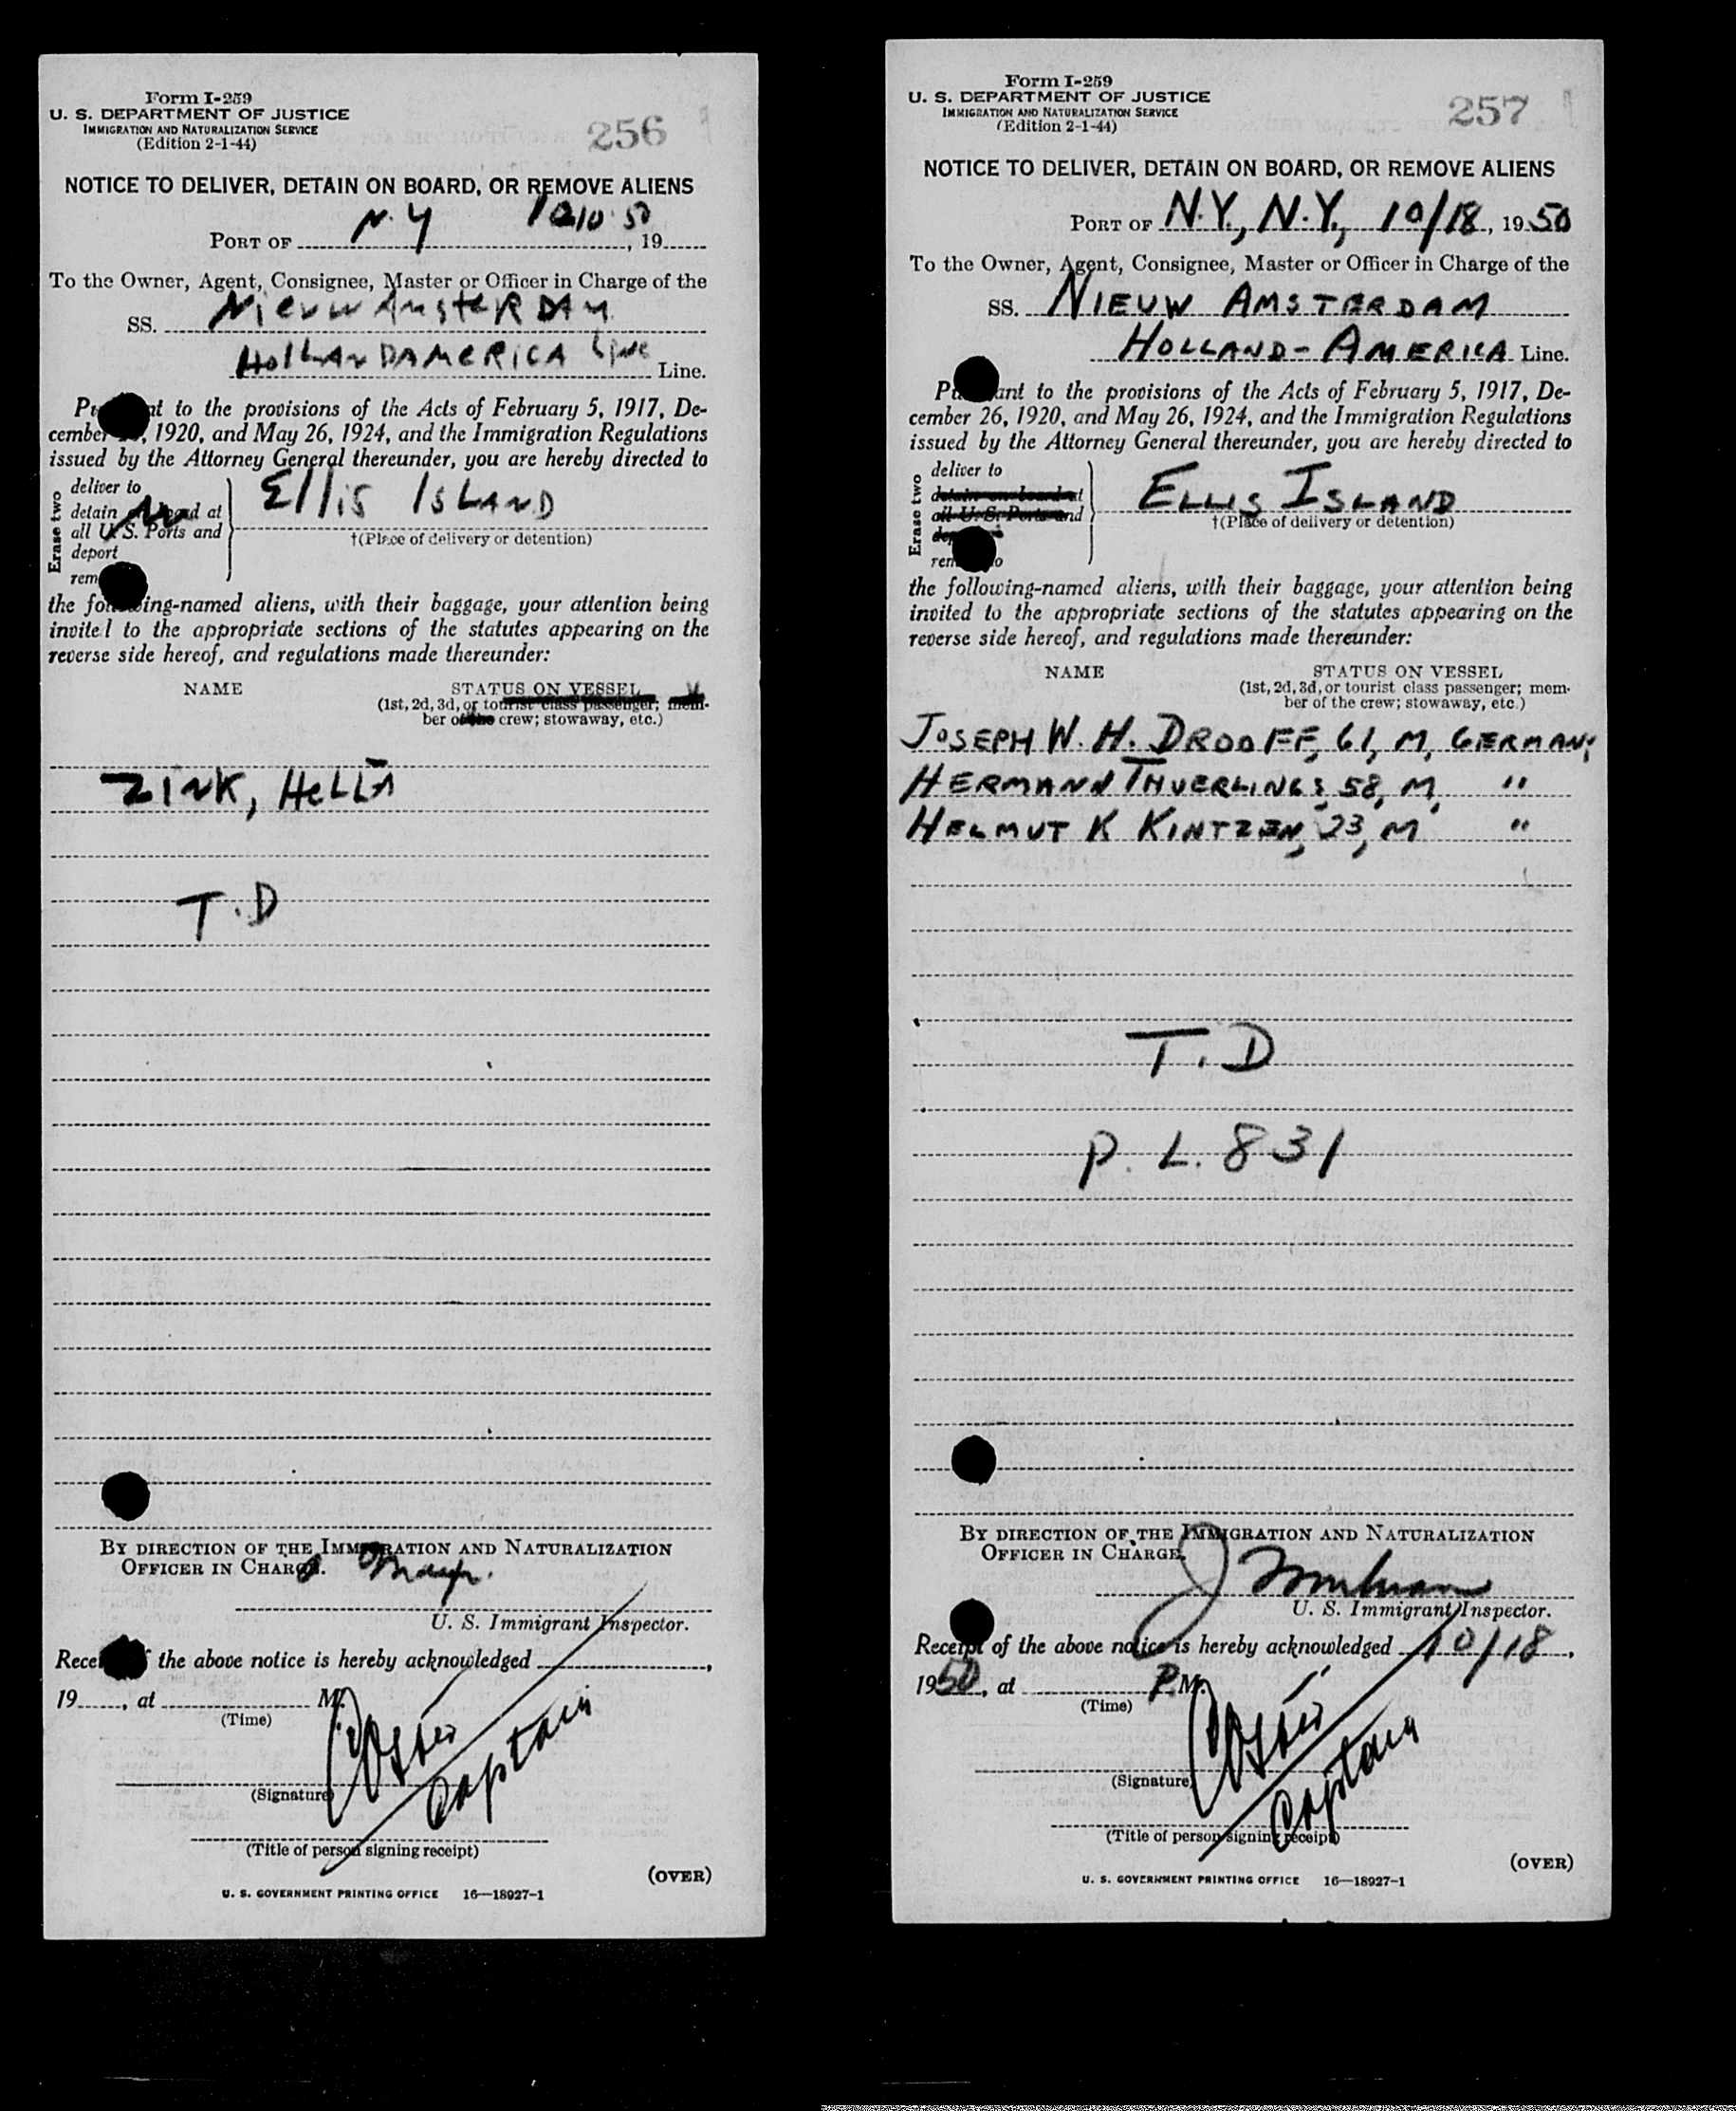 Form I-259
U. S. DEPARTMENT OF JUSTICE
IMMIGRATION AND NATURALIZATION SERVICE
(Edition 2-1-44)
256
NOTICE TO DELIVER, DETAIN ON BOARD, OR REMOVE ALIENS
PORT OF N.Y , 19
To the Owner, Agent, Consignee, Master or Officer in Charge of the
SS. Nieuw AmsteRDAM
HollANDAMERICA Line Line.
to the provisions of the Acts of February 5, 1917, De-
cember , 1920, and May 26, 1924, and the Immigration Regulations
issued by the Attorney General thereunder, you are hereby directed to
Erase two
deliver to
detain at
all U. S. Ports and
deport
Ellis ISLAND
†(Place of delivery or detention)
the following-named aliens, with their baggage, your attention being
invited to the appropriate sections of the statutes appearing on the
reverse side hereof, and regulations made thereunder:
NAME STATUS ON VESSEL
(1st, 2d, 3d, or tourist class passenger; mem-
ber of the crew; stowaway, etc.)
ZINK, HeLLA
T.D
BY DIRECTION OF THE IMMIGRATION AND NATURALIZATION
OFFICER IN CHARGE.
U. S. Immigrant Inspector.
the above notice is hereby acknowledged ,
19 , at M.
(Time)
Captain
(Signature)
(Title of person signing receipt)
(OVER)
U. S. GOVERNMENT PRINTING OFFICE 16—18927-1
Form I-259
U. S. DEPARTMENT OF JUSTICE
IMMIGRATION AND NATURALIZATION SERVICE
(Edition 2-1-44)
257
NOTICE TO DELIVER, DETAIN ON BOARD, OR REMOVE ALIENS
PORT OF N.Y., N.Y., 10/18, 1950
To the Owner, Agent, Consignee, Master or Officer in Charge of the
SS. NIEUW AMSTERDAM
HOLLAND-AMERICA Line.
to the provisions of the Acts of February 5, 1917, De-
cember 26, 1920, and May 26, 1924, and the Immigration Regulations
issued by the Attorney General thereunder, you are hereby directed to
Erase two
deliver to
detain on board at
all U. S. Ports and
ELLIS ISLAND
†(Place of delivery or detention)
the following-named aliens, with their baggage, your attention being
invited to the appropriate sections of the statutes appearing on the
reverse side hereof, and regulations made thereunder:
NAME STATUS ON VESSEL
(1st, 2d, 3d, or tourist class passenger; mem-
ber of the crew; stowaway, etc.)
JOSEPH W. H. DROOFF, 61, M, GERMANY
HERMANN THUERLINGS, 58, M, "
HELMUT K KINTZEN, 23, M "
T.D
P. L. 831
BY DIRECTION OF THE IMMIGRATION AND NATURALIZATION
OFFICER IN CHARGE.
U. S. Immigrant Inspector.
Receipt of the above notice is hereby acknowledged 10/18,
1950, at P.M.
(Time)
Captain
(Signature)
(Title of person signing receipt)
(OVER)
U. S. GOVERNMENT PRINTING OFFICE 16—18927-1